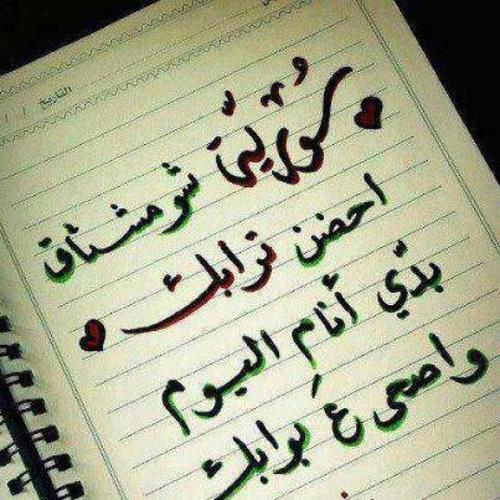 التاريخ / /
سُوريّتي شو مشتاق
احضن ترابك
بدّي أنامِ اليوم
واصحى ع بوابك